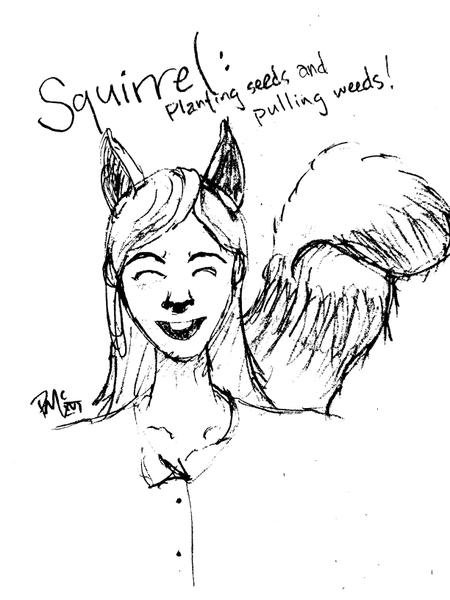 Squirrel:
Planting seeds and
pulling weeds!